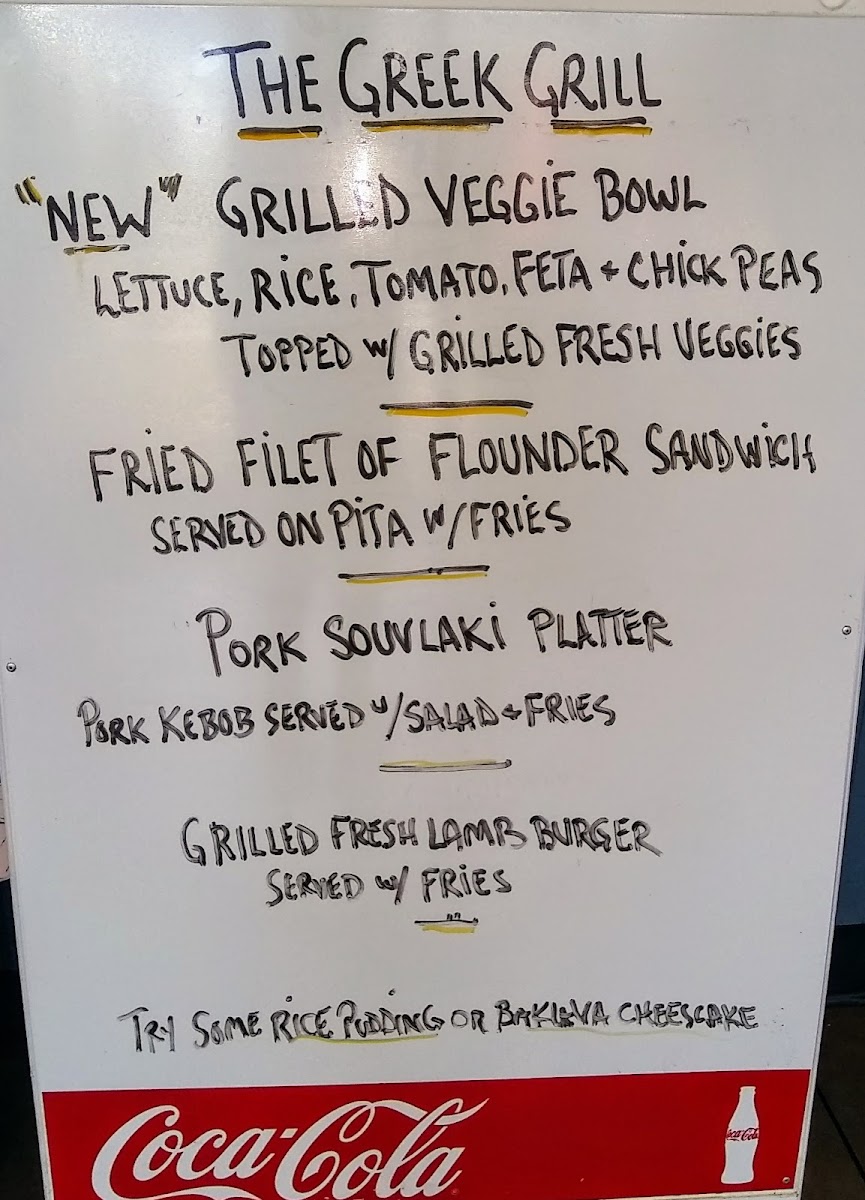 THE GREEK GRILL
"NEW" GRILLED VEGGIE BOWL
LETTUCE, RICE, TOMATO, FETA + CHICK PEAS
TOPPED w/ GRILLED FRESH VEGGIES
FRIED FILET OF FLOUNDER SANDWICH
SERVED ON PITA W/FRIES
PORK SOUVLAKI PLATTER
PORK KEBOB SERVED w/SALAD + FRIES
GRILLED FRESH LAMB BURGER
SERVED w/ FRIES
TRY SOME RICE PUDDING OR BAKLAVA CHEESCAKE
Coca-Cola
Coca-Cola